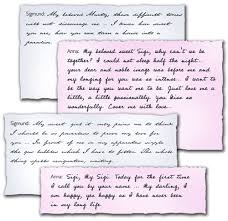 Sigmund: My beloved Marty, these difficult times
will not discourage me ... I know how sweet
you are, how you can turn a house into a
paradise.
Anna: My beloved sweet Sigi, why can't we be
together? I could not sleep half the night...
your dear and noble image was before me and
my longing for you was so intense. I want to
be the way you want me to be. Just love me a
little, a little passionately. Kiss me so
wonderfully. Cover me with love...
Sigmund: My sweet girl it only pains me to think
I should be so powerless to prove my love for
you ... In front of me in my apparatus wiggle
the gas bubbles which I have to filter. The whole
thing spells resignation, waiting.
Anna: Sigi, My Sigi. Today for the first time
I call you by your name ... My darling, I
am happy, so happy as I have never been
in my long life.